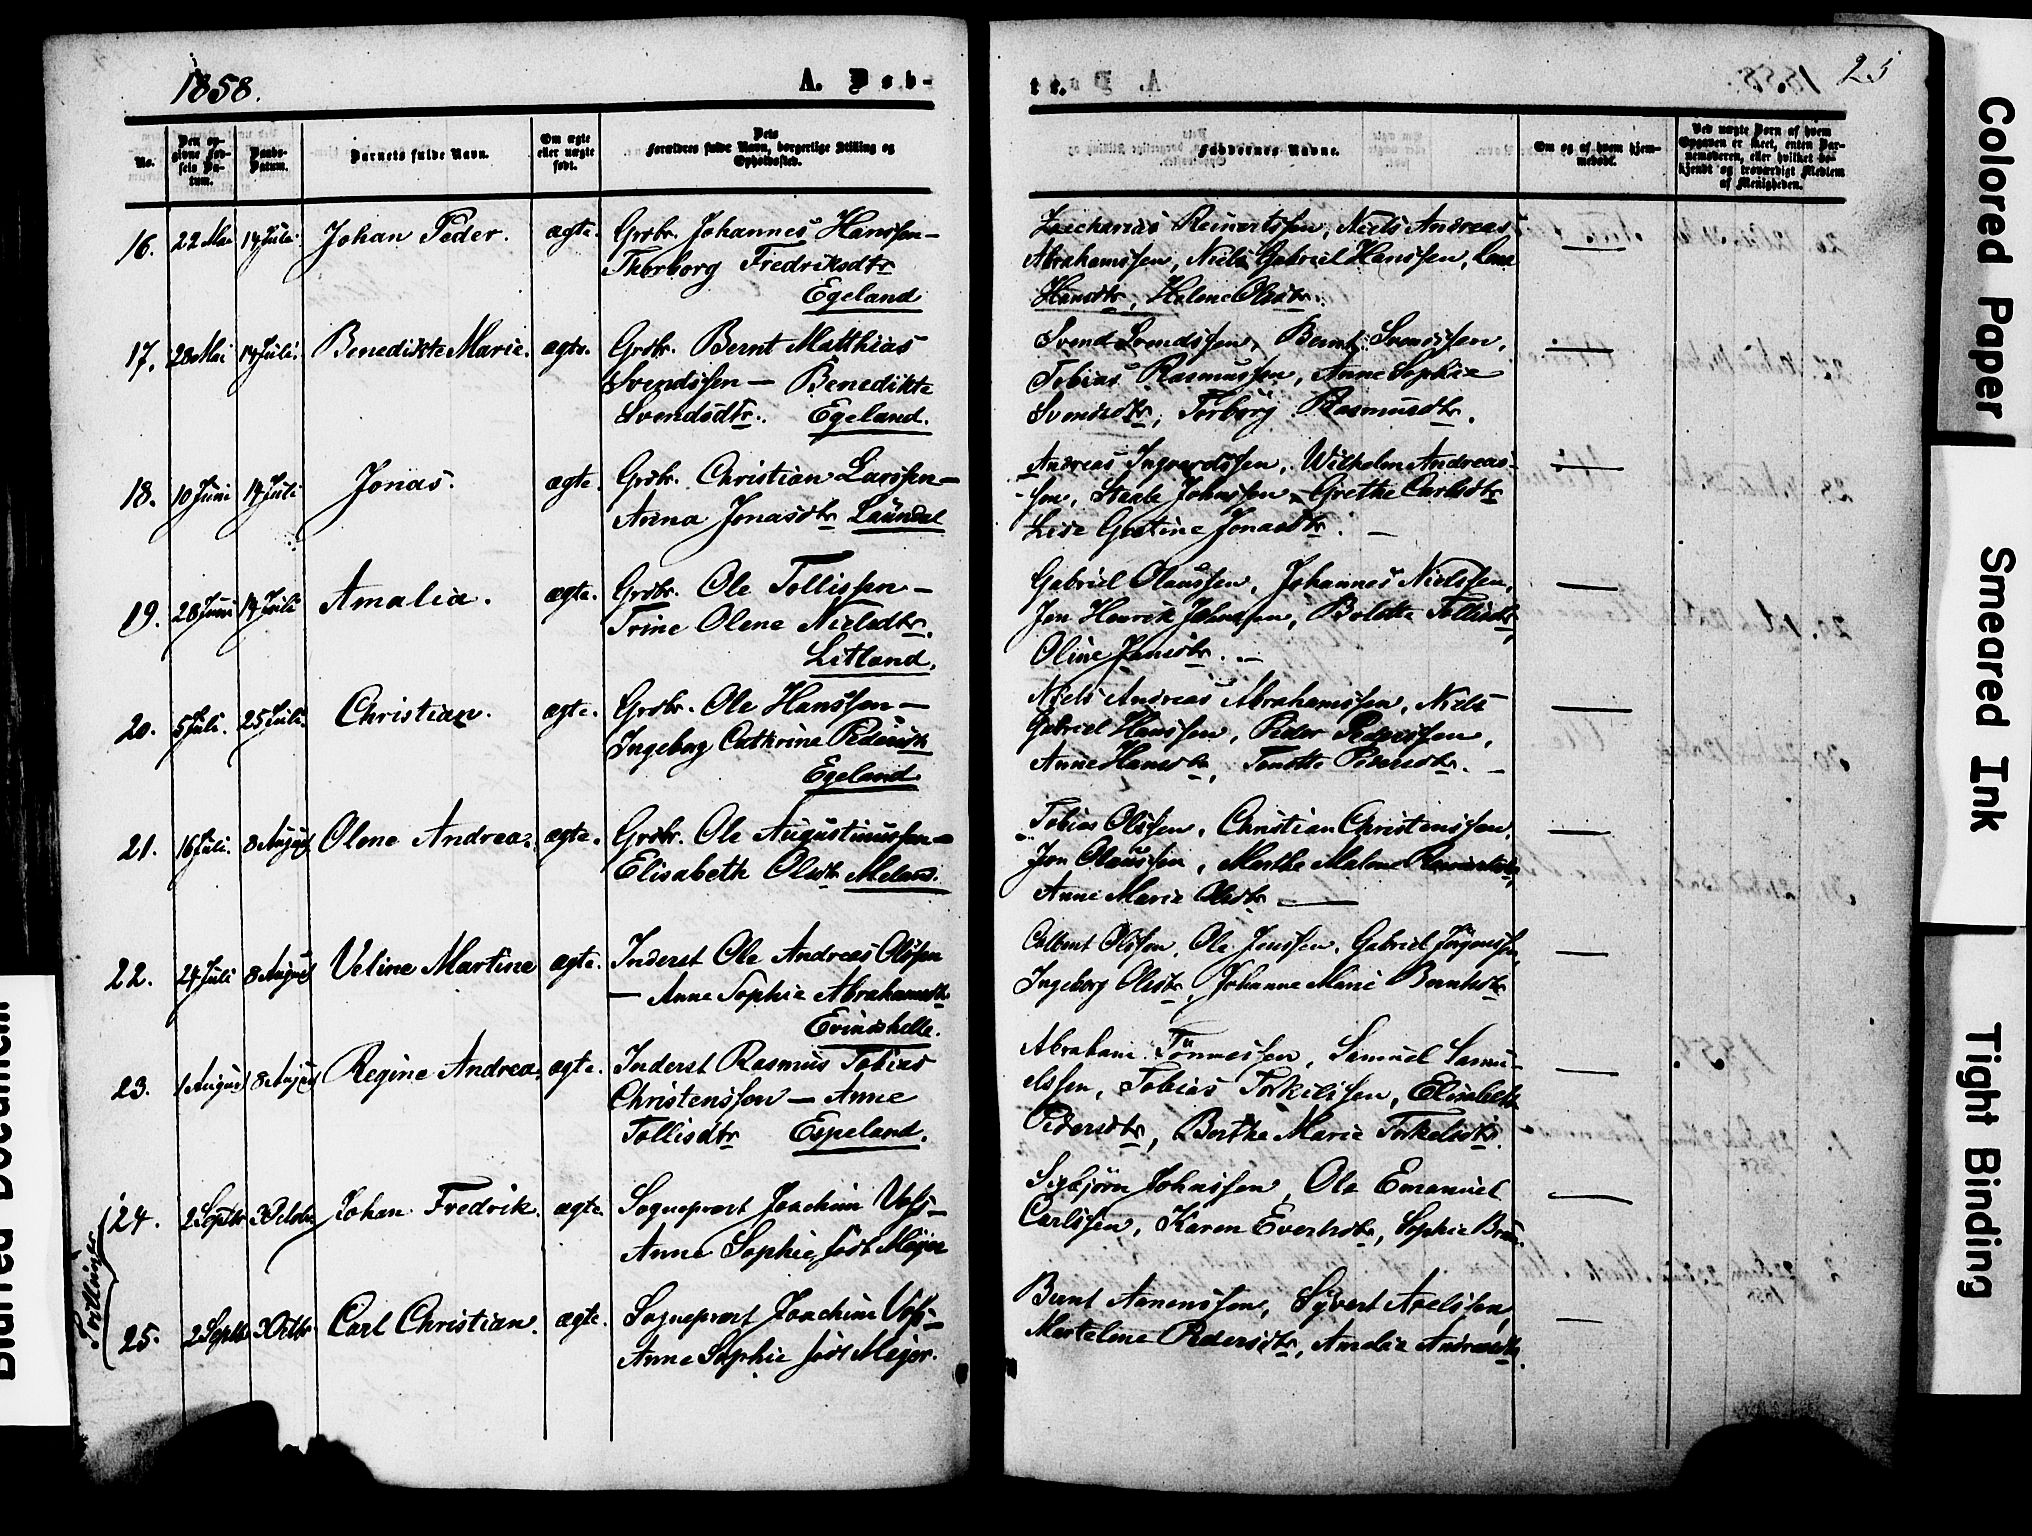 1858.
A. Døb-
No.
Den opgivne Fødsels Datum.
Daabs-Datum.
Barnets fulde Navn.
Om ægte eller uægte født.
Dets Forældres fulde Navn, borgerlige Stilling og Opholdssted.
16. 22 Mai 14 Juli Johan Peder. ægte. Grdbr. Johannes Hanssen –
Thorborg Fredriksdtr
Egeland
17. 28 Mai 14 Juli. Benedikte Marie. ægte. Grdbr. Bernt Matthias
Svendssen – Benedikte
Svendsdtr. Egeland.
18. 10 Juni 14 Juli Jonas. ægte. Grdbr. Christian Larssen –
Anna Jonasdtr Laundal
19. 28 Juni 14 Juli Amalia. ægte. Grdbr. Ole Tollissen –
Trine Olene Nielsdtr.
Litland.
20. 5 Juli. 25 Juli. Christian. ægte. Grdbr. Ole Hanssen –
Ingeborg Cathrine Pedersdtr
Egeland
21. 16 Juli. 8 August Olene Andrea. ægte. Grdbr. Ole Augustinussen –
Elisabeth Olsdtr Meland.
22. 24 Juli 8 August Veline Martine ægte. Inderst Ole Andreas Olssen
– Anne Sophie Abrahamsdtr
Evindshelle.
23. 1 August 8 August Regine Andrea. ægte. Inderst Rasmus Tobias
Christenssen – Anne
Tollisdtr Espeland.
Tvillinger
24. 2 Septbr 3 Octobr Johan Fredrik. ægte. Sogneprest Joachim Voss –
Anne Sophie født Meijer
25. 2 Septbr 3 Octbr Carl Christian. ægte. Sogneprest Joachim Voss –
Anne Sophie født Meijer.
te.
25
Faddernes Navne.
Om og af hvem hjemmedøbt.
Ved uægte Børn af hvem Opgaven er skeet, enten Barnemoderen, eller hvilket bekjendt og troværdigt Medlem af Menigheden.
Zacharias Reinertssen, Niels Andreas
Abrahamssen, Niels Gabriel Hanssen,
Hansdtr, Helene Olsdtr. —
Svend Svendssen, Bernt Svenssen,
Tobias Rasmussen, Anne Sophie
Svendsdtr, Torborg Rasmusdtr. —
Andreas Ingvardssen, Wilhelm Andreas-
sen, Staale Johnssen, Grethe Carlsdtr
Lise Gustine Jonasdtr. —
Gabriel Olaussen, Johannes Nielssen,
Jon Henrik Johnssen, Bolette Tollisdtr,
Oline Jonsdtr. —
Niels Andreas Abrahamssen, Niels
Gabriel Hanssen, Peder Pederssen,
Anne Hansdtr, Tonette Pedersdtr. —
Tobias Olssen, Christian Christenssen,
Jon Olaussen, Marthe Malene Reinertsdtr,
Anne Marie Olsdtr —
Olssen, Ole Jenssen, Gabriel Jörgenssen,
Ingeborg Olsdtr, Johanne Marie Berntsdtr —
Abraham Tönnessen, Samuel Samu-
elssen, Tobias Torkilssen, Elisabeth
Pedersdtr, Berthe Marie Torkelsdtr. —
Sigbjörn Johnssen, Ole Emanuel
Carlssen, Karen Evertsdtr, Sophie Brun. —
Bernt Aanenssen, Syvert Axelssen,
Martalene Pedersdtr, Amalie Andreasdtr. —
Colored Paper
Smeared Ink
Tight Binding
Blurred Document